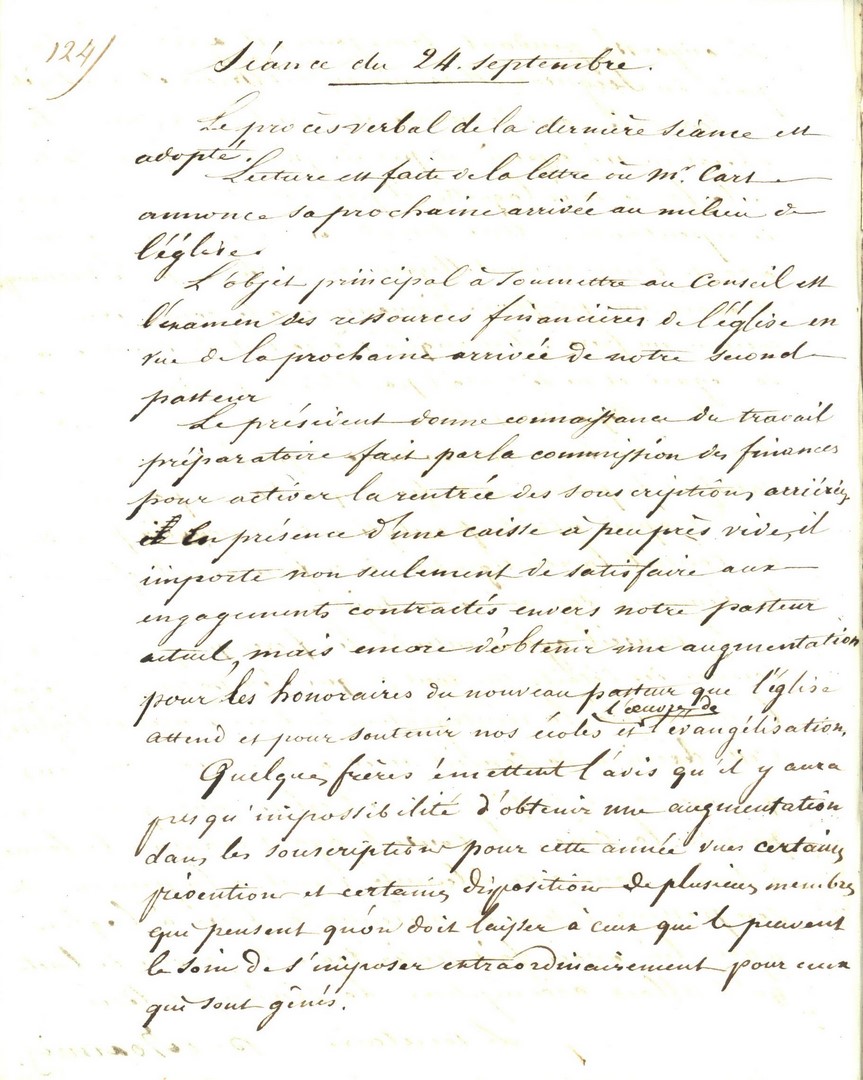 124)
Séance du 24. septembre.
Le procès verbal de la dernière séance est
adopté.
Lecture est faite de la lettre où Mr. Cart
annonce sa prochaine arrivée au milieu de
l'église.
L'objet principal à soumettre au Conseil est
l'examen des ressources financières de l'église en
vue de la prochaine arrivée de notre second
pasteur
Le président donne connaissance du travail
préparatoire fait par la commission des finances
pour activer la rentrée des souscriptions arriérées
En présence d'une caisse à peu près vide, il
importe non seulement de satisfaire aux
engagements contractés envers notre pasteur
actuel, mais encore d'obtenir une augmentation
pour les honoraires du nouveau pasteur que l'église
l'œuvre de
attend et pour soutenir nos écoles et l'évangélisation.
Quelques frères émettent l'avis qu'il y aura
presqu'impossibilité d'obtenir une augmentation
dans les souscriptions pour cette année vues certaines
préventions et certaines dispositions de plusieurs membres
qui pensent qu'on doit laisser à ceux qui le peuvent
le soin de s'imposer extraordinairement pour ceux
qui sont gênés.